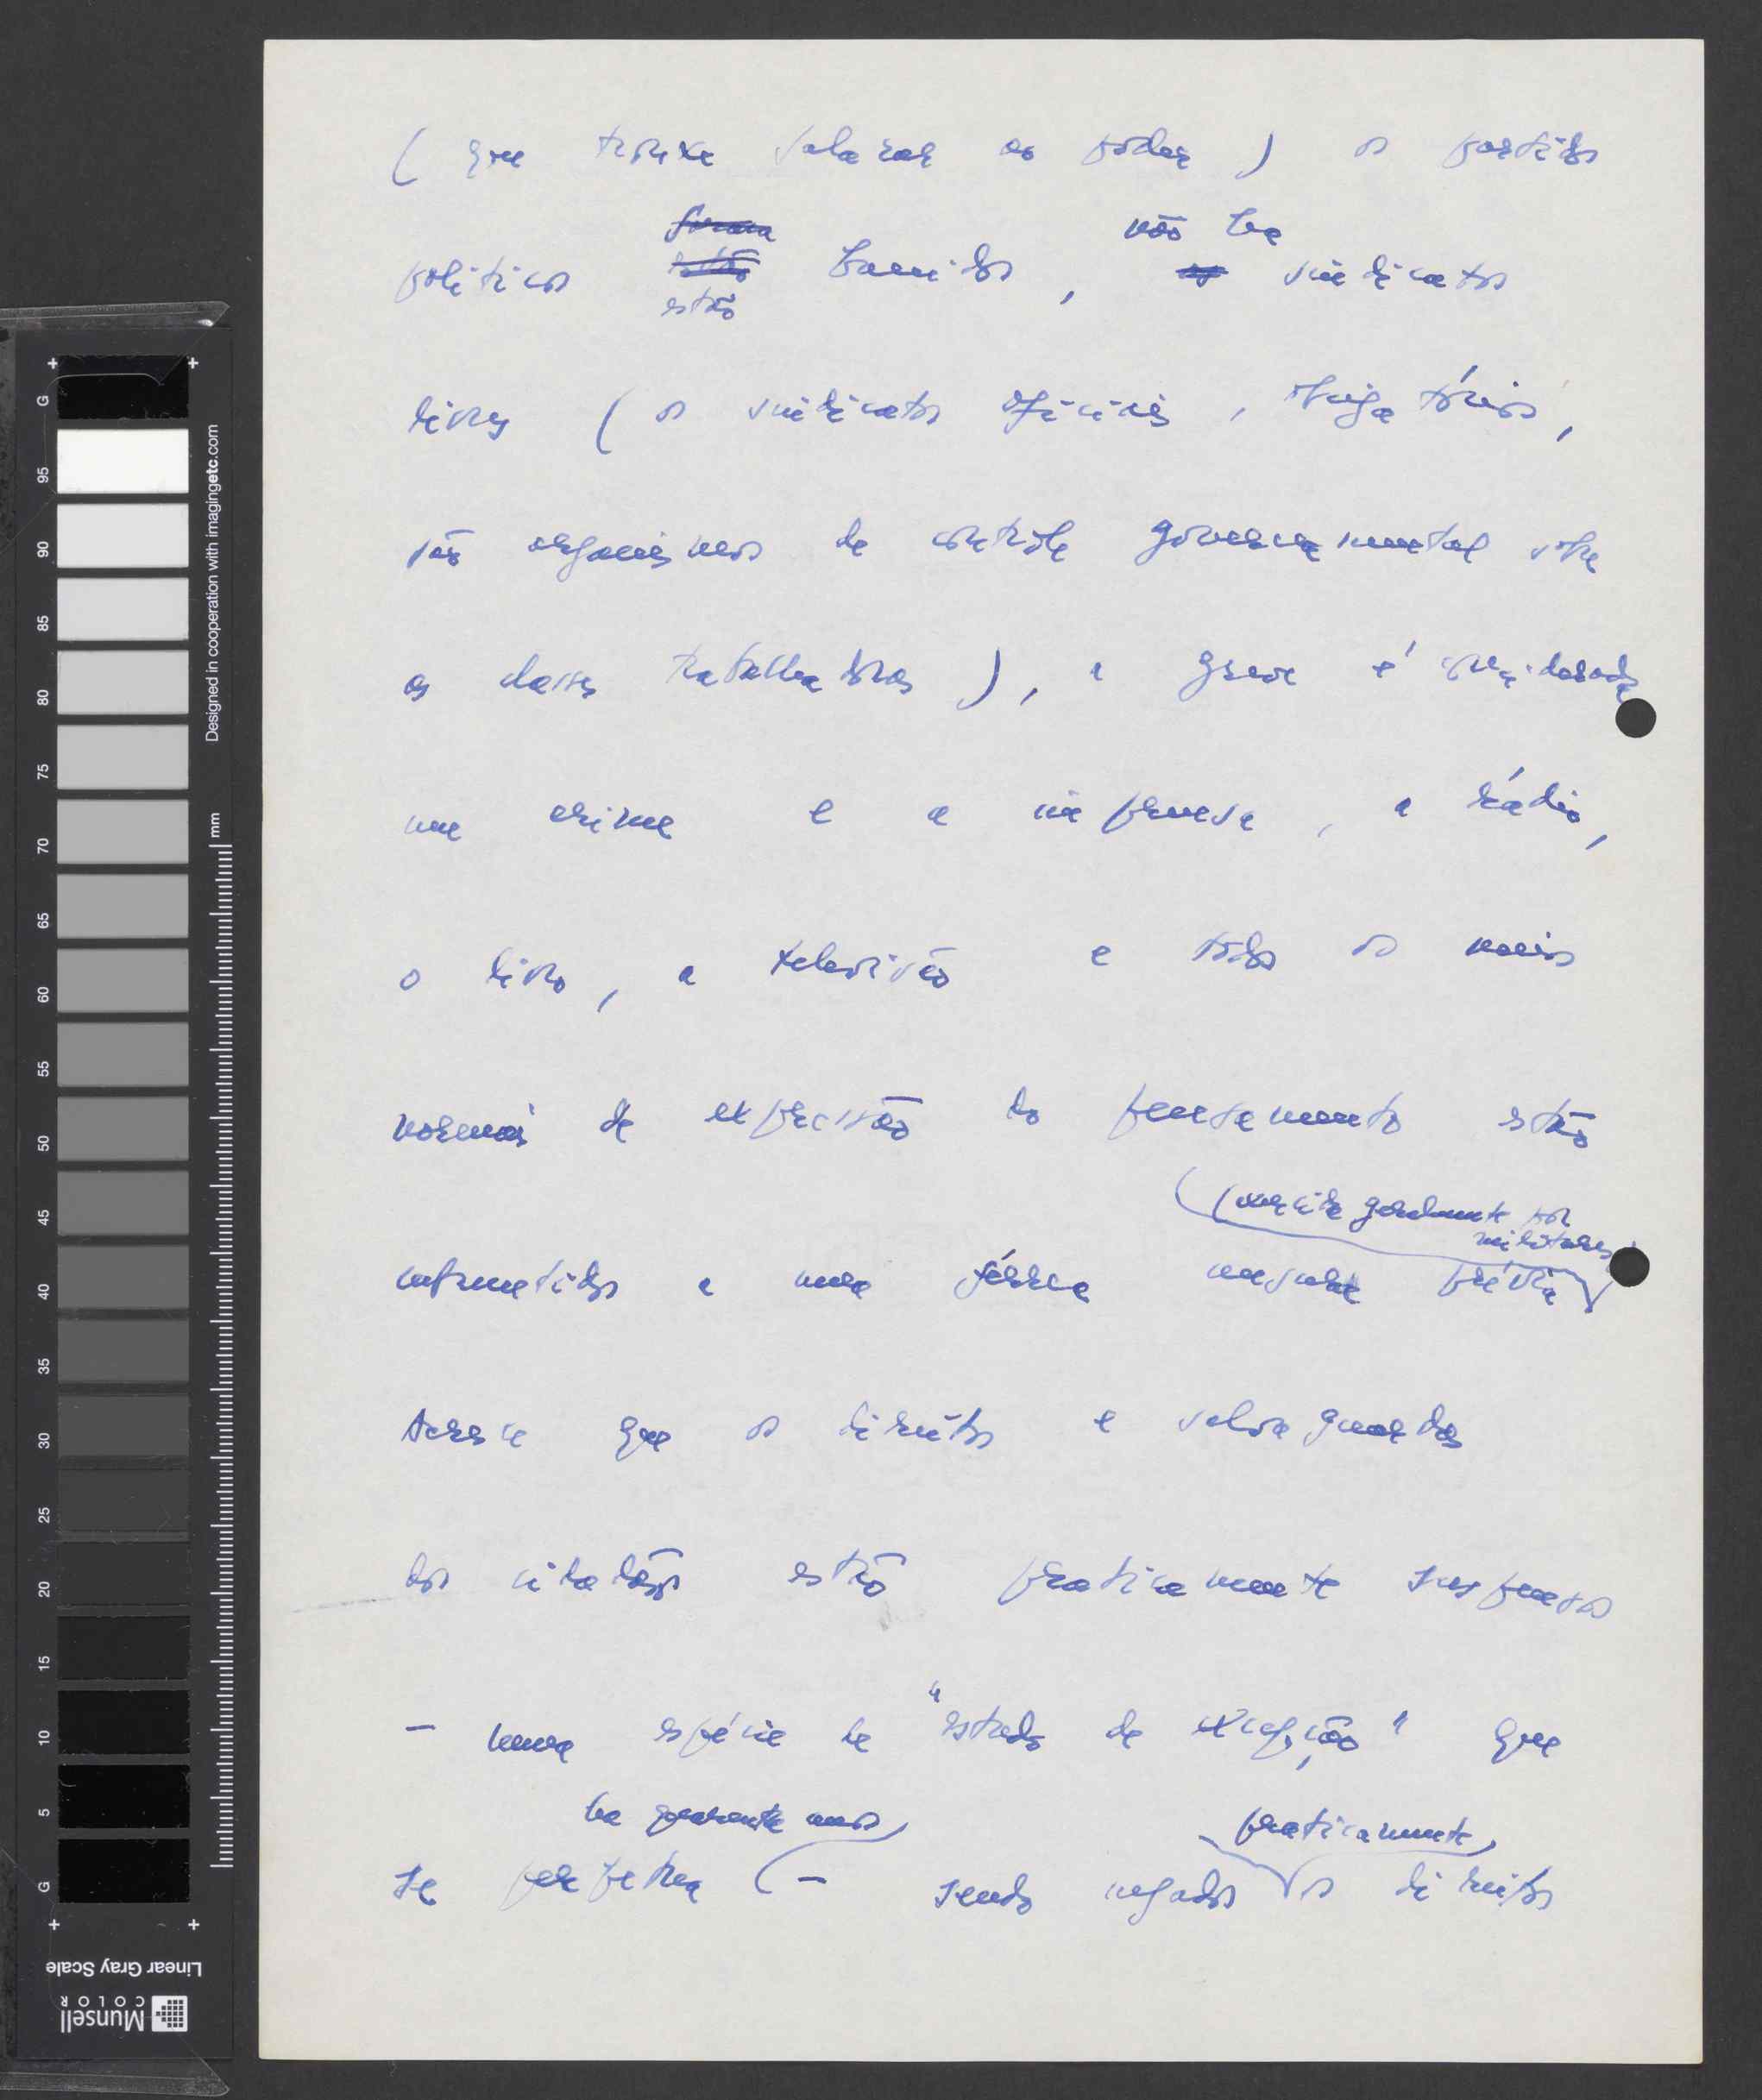 ( que trouxe Salazar ao poder ) os partidos
foram
não há
políticos estão banidos , os sindicatos
estão
livres ( os sindicatos oficiais , obrigatórios ,
são organismos de contrôle governamental sobre
as classes trabalhadoras ) , a greve é considerada
um crime e a imprensa , a rádio ,
o livro , a televisão e todos os meios
normais de expressão do pensamento estão
(exercida geralmente por
militares)
submetidos a uma férrea censura prévia
Acresce que os direitos e salvaguardas
dos cidadãos estão praticamente suspensos
– numa espécie de "estado de excepção" que
há quarenta anos praticamente
se perpetua – sendo negados os direitos
G
95
90
85
80
75
70
65
60
55
50
45
40
35
30
25
20
15
10
5
G
mm
Designed in cooperation with imagingetc.com
Linear Gray Scale
Munsell
COLOR